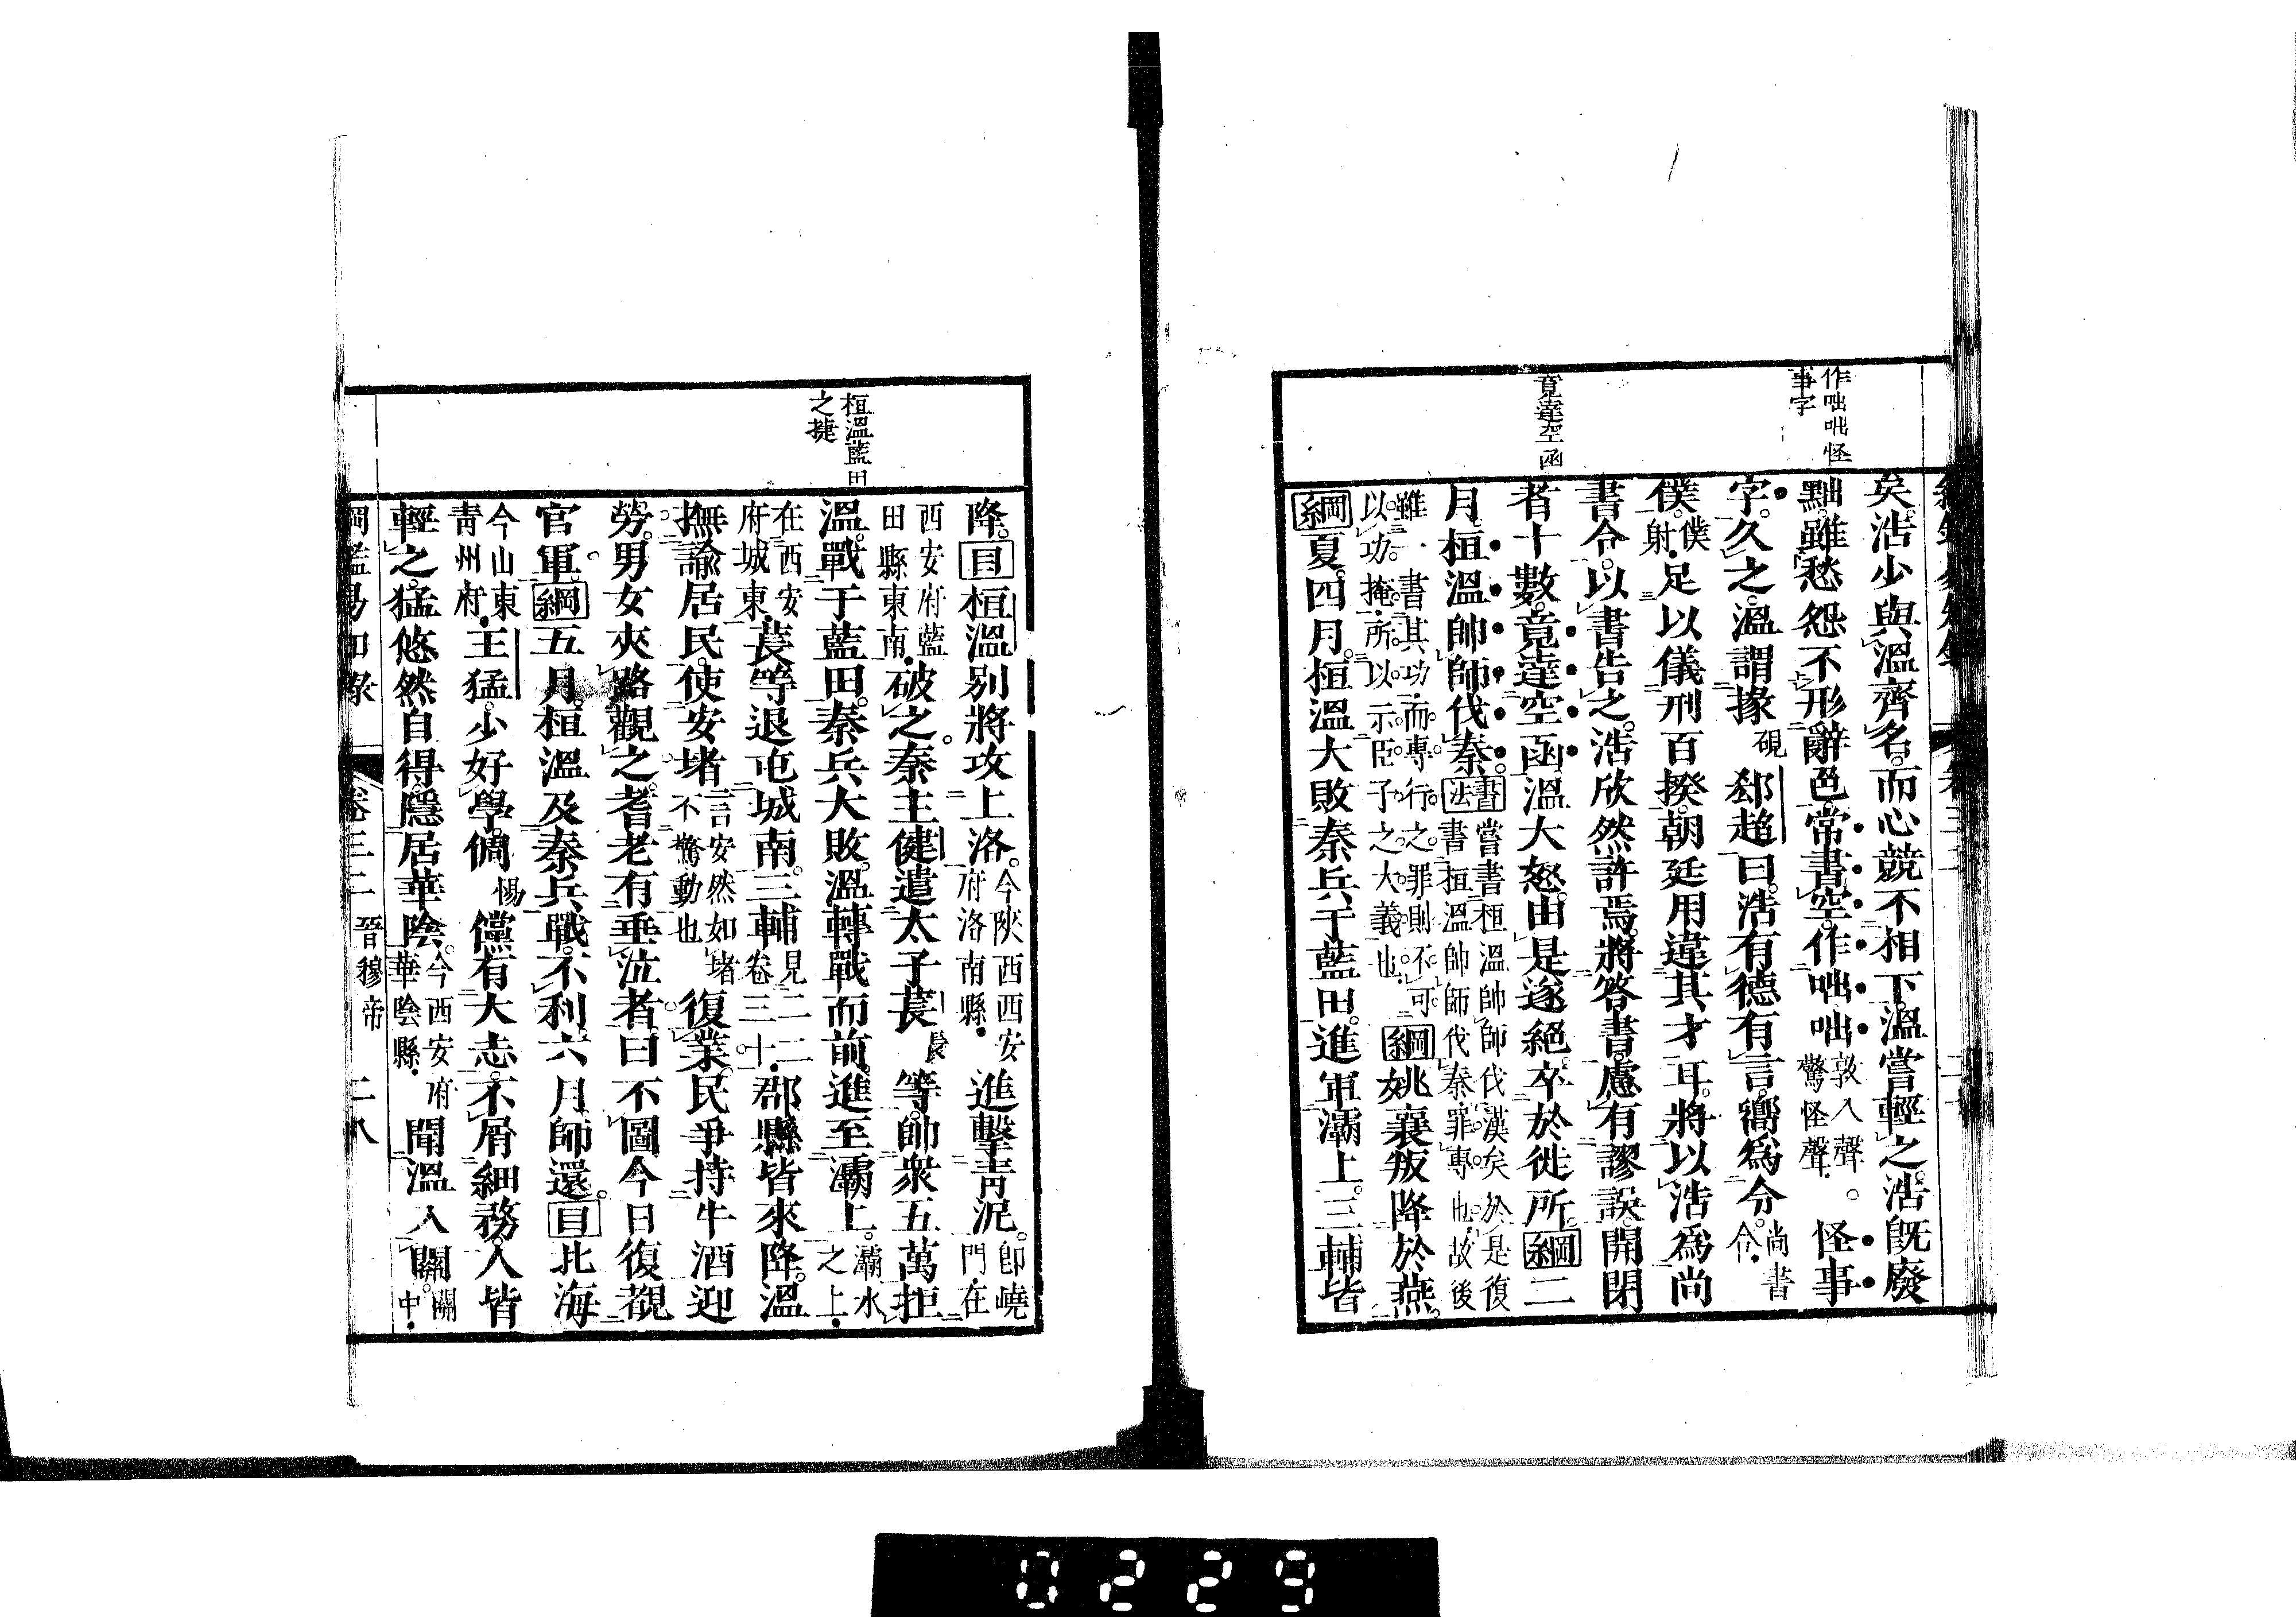 作咄咄怪
事字
竟達空函
矣。浩少與溫齊名。而心競不相下。溫嘗輕之。浩旣廢
黜。雖愁怨不形辭色。常書空。作咄咄敦入聲。驚怪聲。怪事
字。久之。溫謂掾硯郄超曰。浩有德有言。嚮爲令尚書令。
僕。僕射。足以儀刑百揆。朝廷用違其才耳。將以浩爲尚
書令。以書告之。浩欣然許焉。將答書。慮有謬誤。開閉
者十數。竟達空函。溫大怒。由是遂絕。卒於徙所。綱二
月。桓溫帥師伐秦。書法嘗書桓溫帥師伐漢矣於是復書桓溫帥師伐秦。罪專也。故後
雖一書其功。而專行之罪則不可以功掩。所以示臣子之大義也。綱姚襄叛降於燕。
綱夏。四月。桓溫大敗秦兵于藍田。進軍灞上。三輔皆
桓溫藍田
之捷
降。目桓溫別將攻上洛。今陝西西安府洛南縣。進擊靑泥。卽嶢門。在
西安府藍田縣東南。破之。秦主健遣太子萇長等。帥衆五萬拒
溫。戰于藍田。秦兵大敗。溫轉戰而前。進至灞上。灞水之上。
在西安府城東。萇等退屯城南。三輔見二二卷三十。郡縣皆來降。溫
撫諭居民。使安堵言安然如堵不驚動也復業。民爭持牛酒迎
勞。男女夾路觀之。耆老有垂泣者。曰不圖今日復覩
官軍。綱五月。桓溫及秦兵戰。不利。六月師還。目北海
今山東靑州府。王猛。少好學。倜惕儻有大志。不屑細務。人皆
輕之。猛悠然自得。隱居華陰。今西安府華陰縣。聞溫入關。關中。
綱鑑易知錄 卷三二 晉穆帝 二八
0229